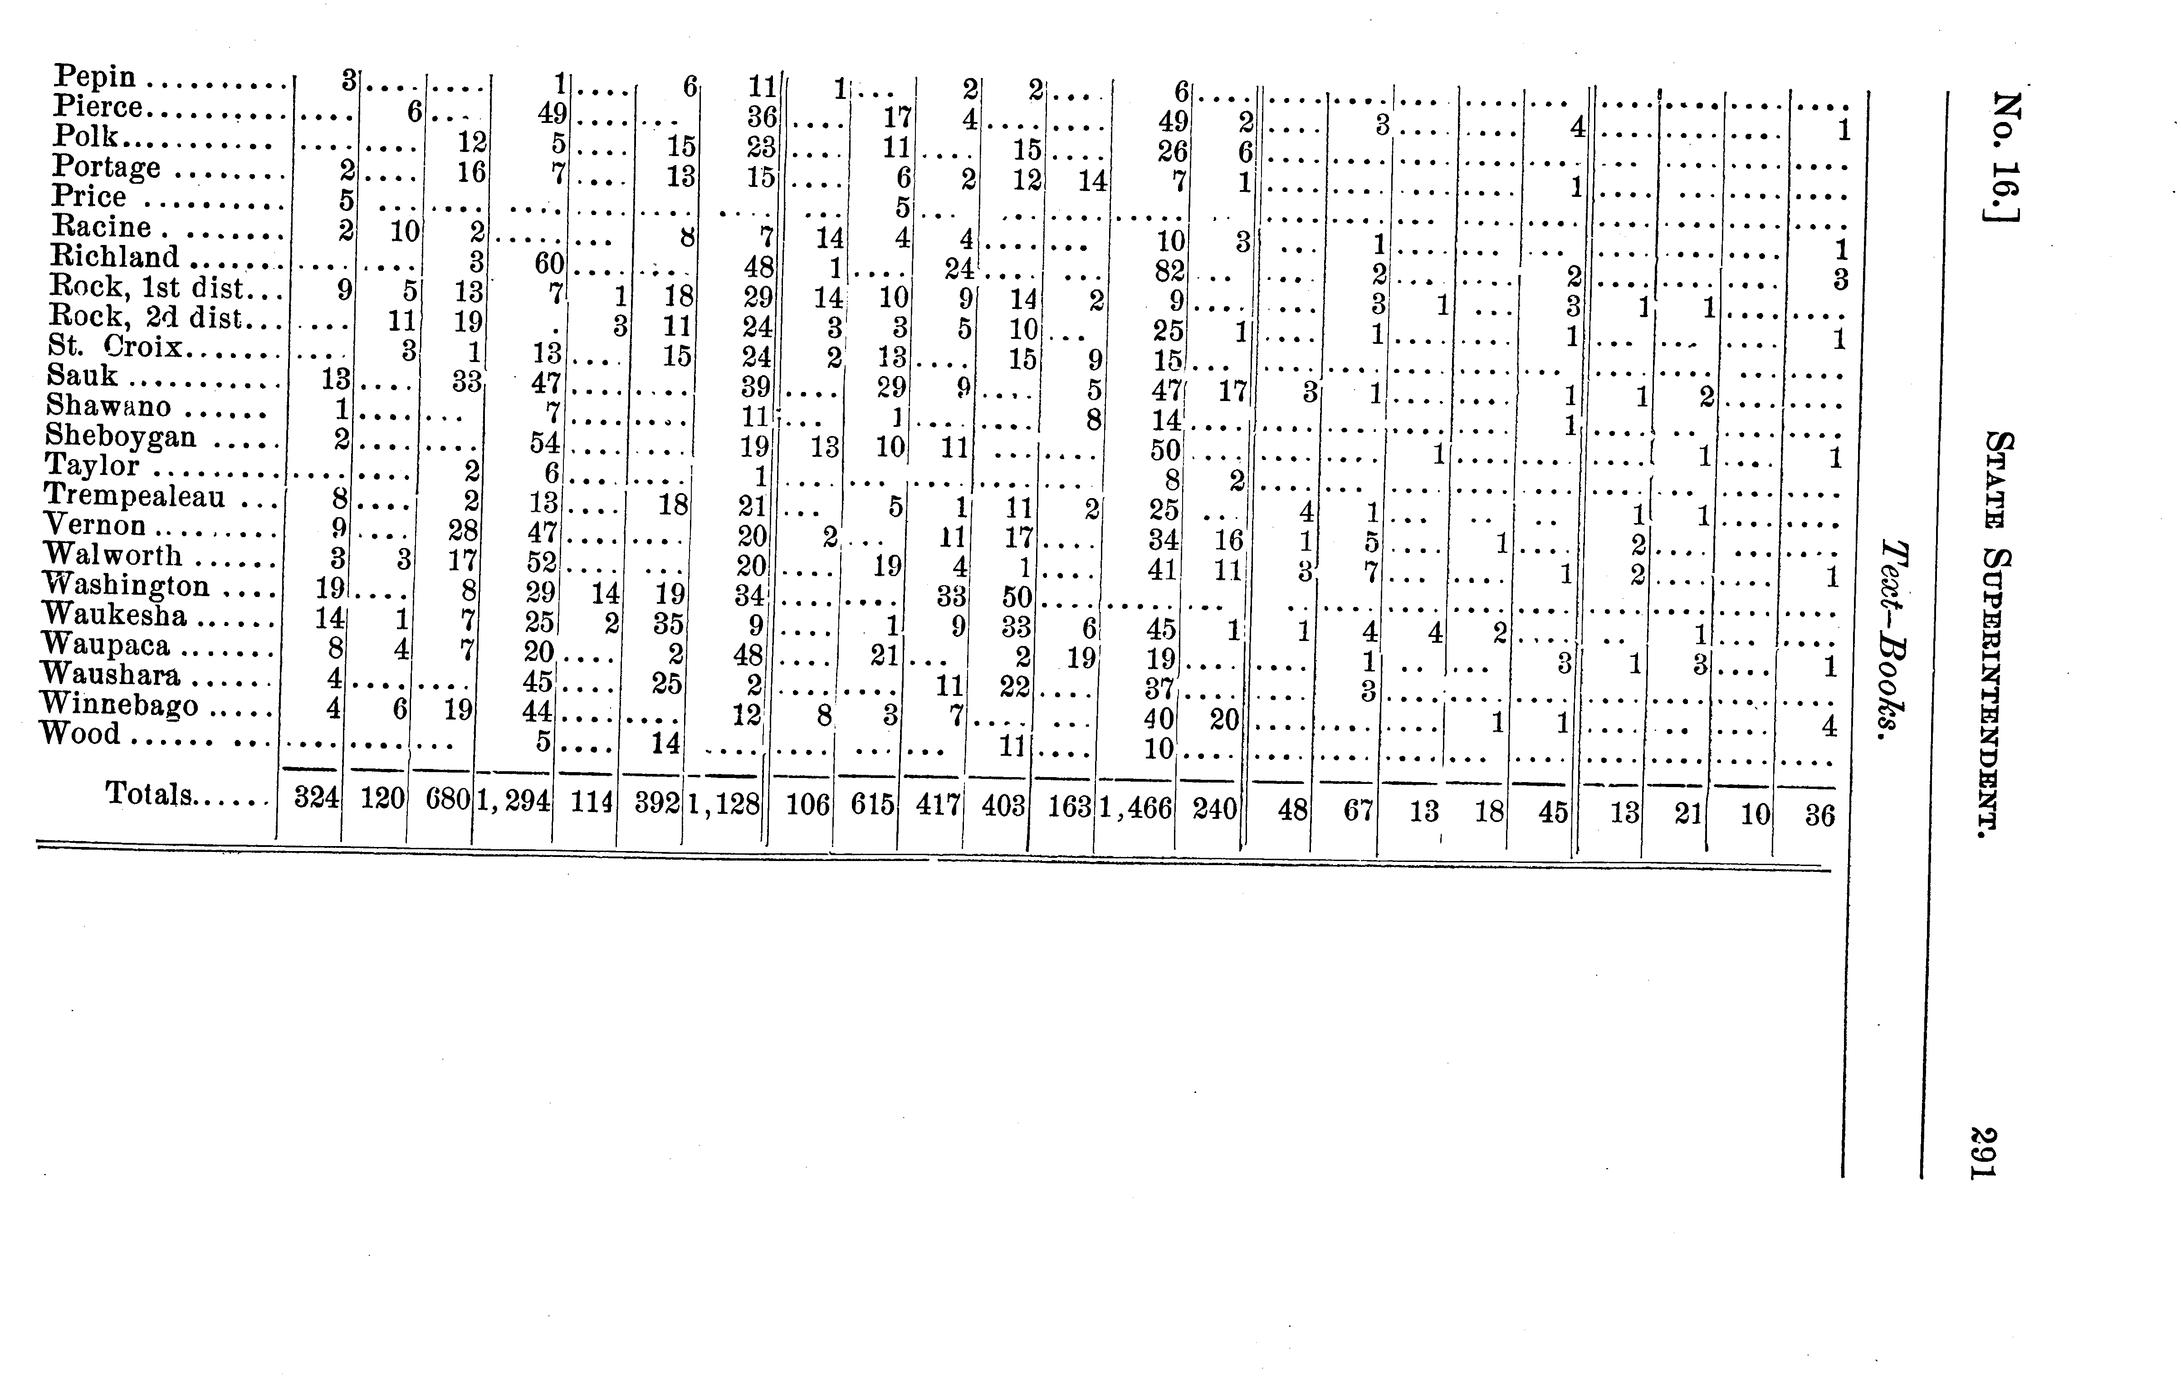 No. 16.] STATE SUPERINTENDENT. 291
Text-Books.
Pepin .......... 3 .... .... 1 .... 6 11 1 ... 2 2 .... 6 .... .... .... .... .... ... .... .... .... ....
Pierce........... .... 6 ... 49 .... ... 36 .... 17 4 .... .... 49 2 .... 3 .... .... 4 .... .... .... 1
Polk............ .... .... 12 5 .... 15 23 .... 11 .... 15 .... 26 6 .... .... .... .... .... ... .... .... ....
Portage ........ 2 .... 16 7 .... 13 15 .... 6 2 12 14 7 1 .... .... .... .... 1 .... .... .... ....
Price .......... 5 ... .... .... .... .... .... ... 5 ... .... .... ..... .. .... .... .... .... ... .... .... .... ....
Racine . ....... 2 10 2 ..... ... 8 7 14 4 4 .... ... 10 3 ... 1 .... ... .... .... .... .... 1
Richland ....... .... .... 3 60 .... .... 48 1 .... 24 .... ... 82 ... .... 2 .... .... 2 .... .... .... 3
Rock, 1st dist... 9 5 13 7 1 18 29 14 10 9 14 2 9 .... .... 3 1 ... 3 1 1 .... ....
Rock, 2d dist... .... 11 19 . 3 11 24 3 3 5 10 ... 25 1 .... 1 .... .... 1 ... ... .... 1
St. Croix....... .... 3 1 13 .... 15 24 2 13 .... 15 9 15 ... .... .... .... .... ... .... .... ... ....
Sauk ........... 13 .... 33 47 .... .... 39 .... 29 9 .... 5 47 17 3 1 .... .... 1 1 2 .... ....
Shawano ...... 1 .... ... 7 .... .... 11 ... 1 .... .... 8 14 .... .... .... .... .... 1 .... .. .... ....
Sheboygan ..... 2 .... .... 54 .... .... 19 13 10 11 ... .... 50 .... .... .... 1 .... .... .... 1 .... 1
Taylor ......... .... .... 2 6 .... .... 1 .... ... .... .... .... 8 2 .... ... .... .... .... .... .. .... ....
Trempealeau ... 8 .... 2 13 .... 18 21 ... 5 1 11 2 25 ... 4 1 ... .. .. 1 1 .... ....
Vernon ......... 9 .... 28 47 .... .... 20 2 ... 11 17 .... 34 16 1 5 .... 1 .... 2 .... ... ....
Walworth ...... 3 3 17 52 .... ... 20 .... 19 4 1 .... 41 11 3 7 ... .... 1 2 .... .... 1
Washington .... 19 .... 8 29 14 19 34 .... .... 33 50 .... ..... ... .. .... .... .... .... .... .... .... ....
Waukesha ...... 14 1 7 25 2 35 9 .... 1 9 33 6 45 1 1 4 4 2 .... .. 1 ... ....
Waupaca ....... 8 4 7 20 .... 2 48 .... 21 ... 2 19 19 .... .... 1 .. ... 3 1 3 .... 1
Waushara ...... 4 .... .... 45 .... 25 2 .... .... 11 22 .... 37 .... .... 3 .... .... .... .... .... .... ....
Winnebago ..... 4 6 19 44 .... .... 12 8 3 7 .... ... 40 20 .... .... .... 1 1 .... .. .... 4
Wood ...... ... .... .... ... 5 .... 14 .... .... ... ... 11 .... 10 .... .... .... .... ... .... .... .... .... ....
Totals...... 324 120 680 1,294 114 392 1,128 106 615 417 403 163 1,466 240 48 67 13 18 45 13 21 10 36